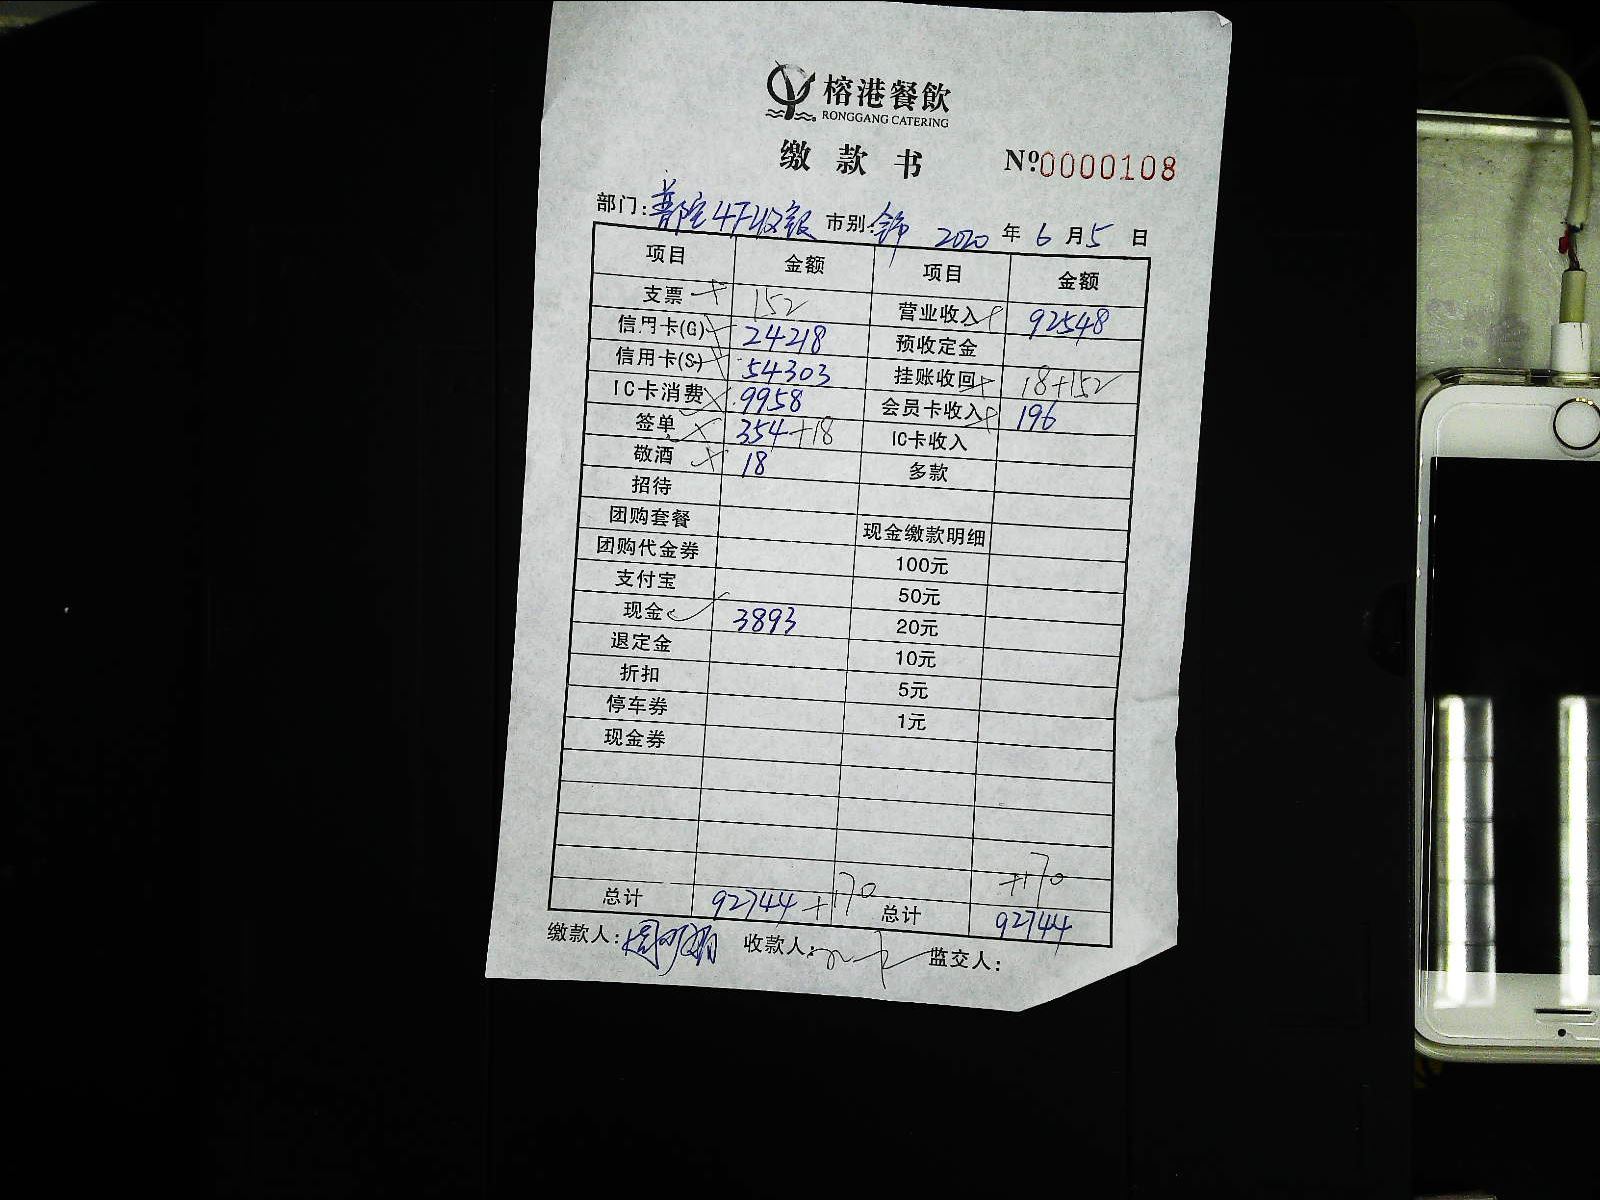 榕港餐飲
RONGGANG CATERING
缴款书 №0000108
部门:普陀4F收银 市别:全市 2020年6月5日
项目 金额 项目 金额
支票 152 营业收入 92548
信用卡(G) 24218 预收定金
信用卡(S) 54303 挂账收回 18+152
IC卡消费 9958 会员卡收入 196
签单 354+18 IC卡收入
敬酒 18 多款
招待
团购套餐 现金缴款明细
团购代金券 100元
支付宝 50元
现金 3893 20元
退定金 10元
折扣 5元
停车券 1元
现金券
+170
总计 92744+170 总计 92744
缴款人: 收款人: 监交人: